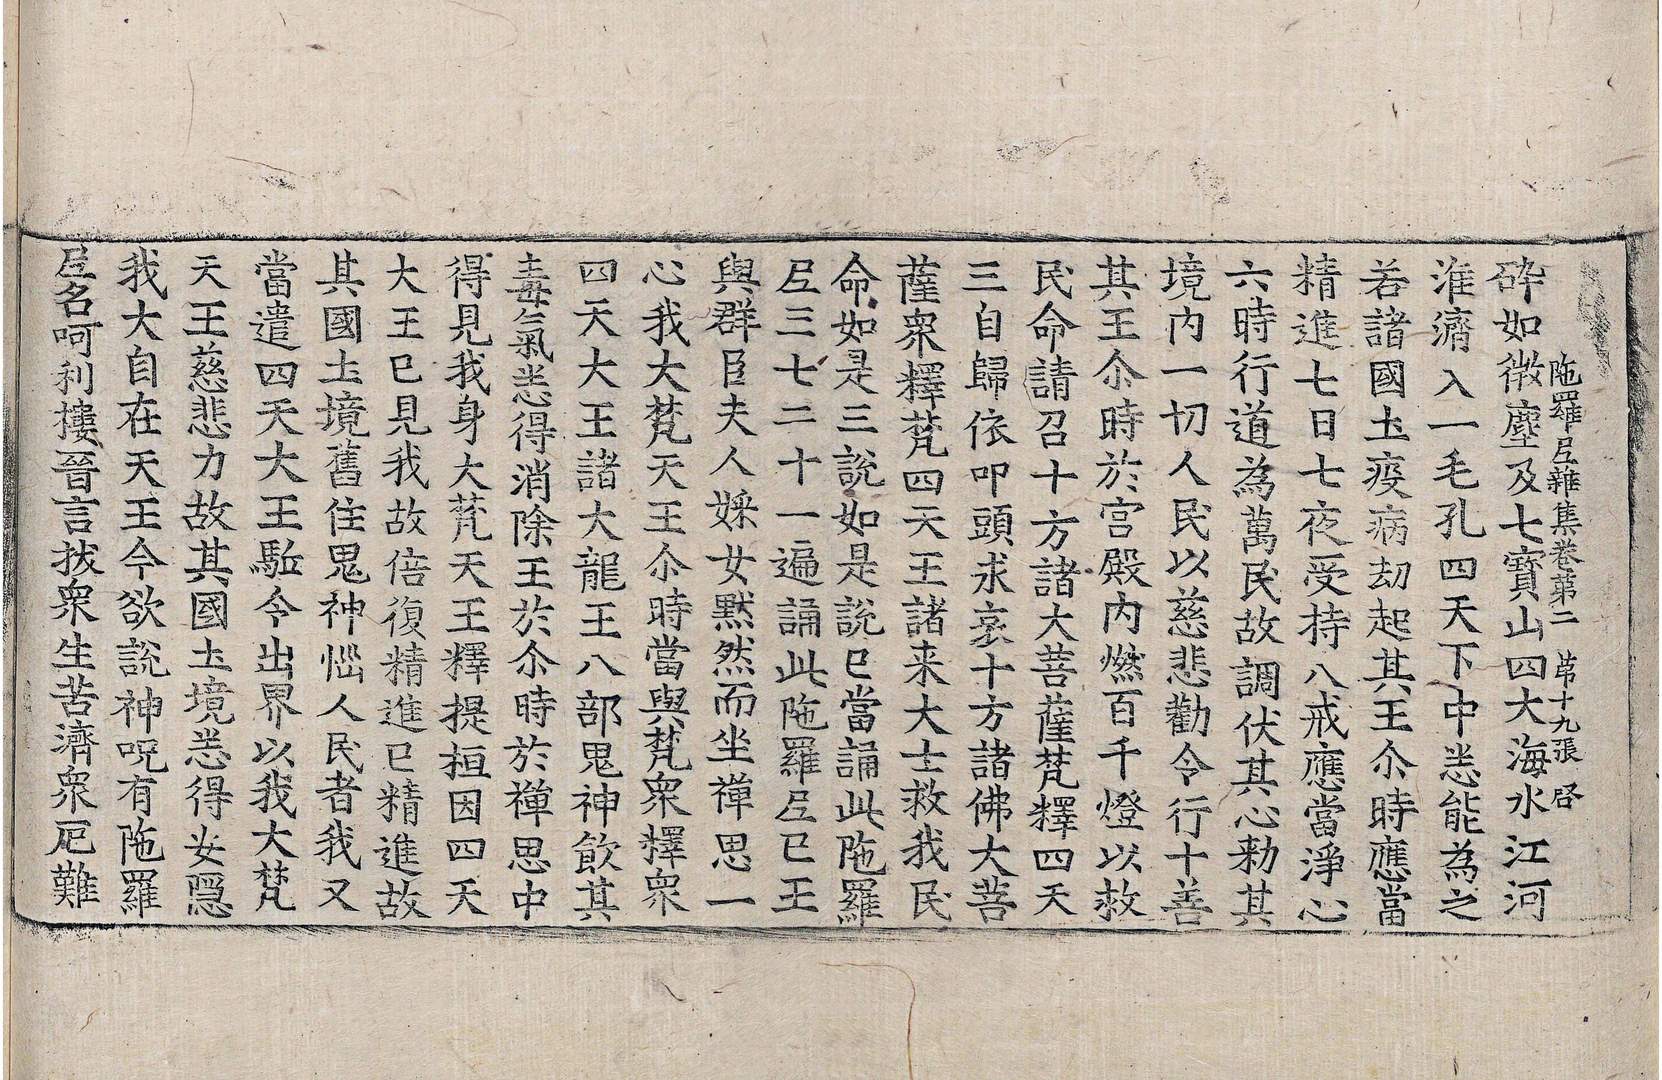 陁羅𡰱雜集卷第二　第十九張　啓
碎如微塵及七寶山四大海水江河
淮濟入一毛孔四天下中悉能為之
若諸國土疫病劫起其王尒時應當
精進七日七夜受持八戒應當淨心
六時行道為萬民故調伏其心勑其
境內一切人民以慈悲勸令行十善
其王尒時於宮殿內燃百千燈以救
民命請召十方諸大菩薩梵釋四天
三自歸依叩頭求哀十方諸佛大菩
薩衆釋梵四天王諸来大士救我民
命如是三說如是說已當誦此陁羅
𡰱三七二十一遍誦此陁羅𡰱已王
與群臣夫人婇女默然而坐禪思一
心我大梵天王尒時當與梵衆釋衆
四天大王諸大龍王八部鬼神飮其
毒氣悉得消除王於尒時於禪思中
得見我身大梵天王釋提桓因四天
大王已見我故倍復精進已精進故
其國土境舊住鬼神惱人民者我又
當遣四天大王駈令出界以我大梵
天王慈悲力故其國土境悉得安隱
我大自在天王今欲說神呪有陁羅
𡰱名呵利摟晉言拔衆生苦濟衆厄難